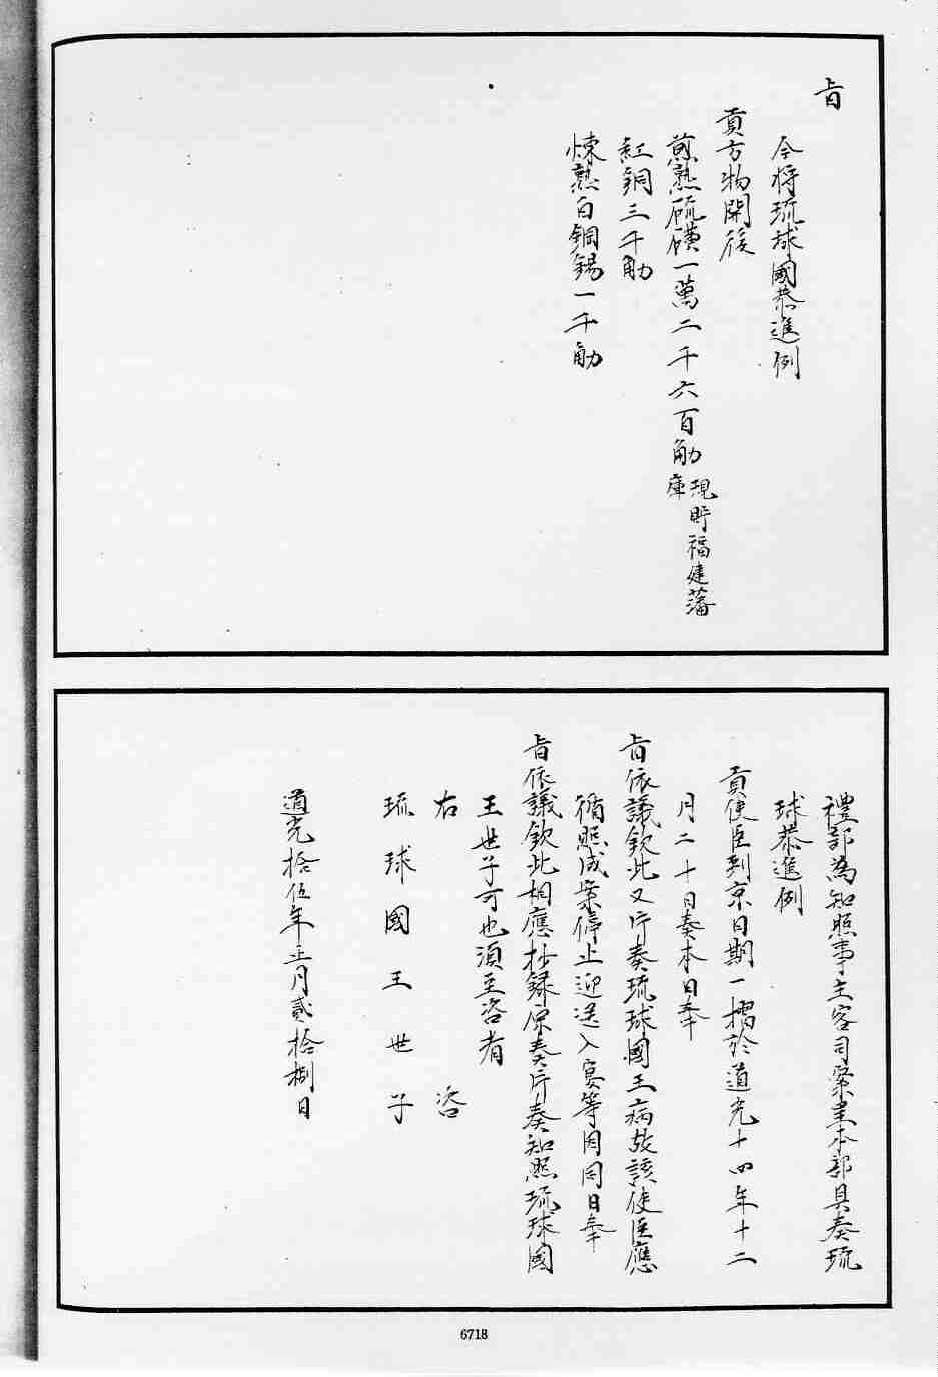 旨
今將琉球國恭進例
貢方物開後
煎熟硫磺一萬二千六百觔現貯福建藩庫
紅銅三千觔
煉熟白鋼錫一千觔
禮部為知照事主客司案呈本部具奏琉
球恭進例
貢使臣到京日期一摺於道光十四年十二
月二十日奏本日奉
旨依議欽此又片奏琉球國王病故該使臣應
循照成案停止迎送入宴等因同日奉
旨依議欽此相應抄録原奏片奏知照琉球國
王世子可也須至咨者
右 咨
琉球國王世子
道光拾伍年正月貳拾捌日
6718